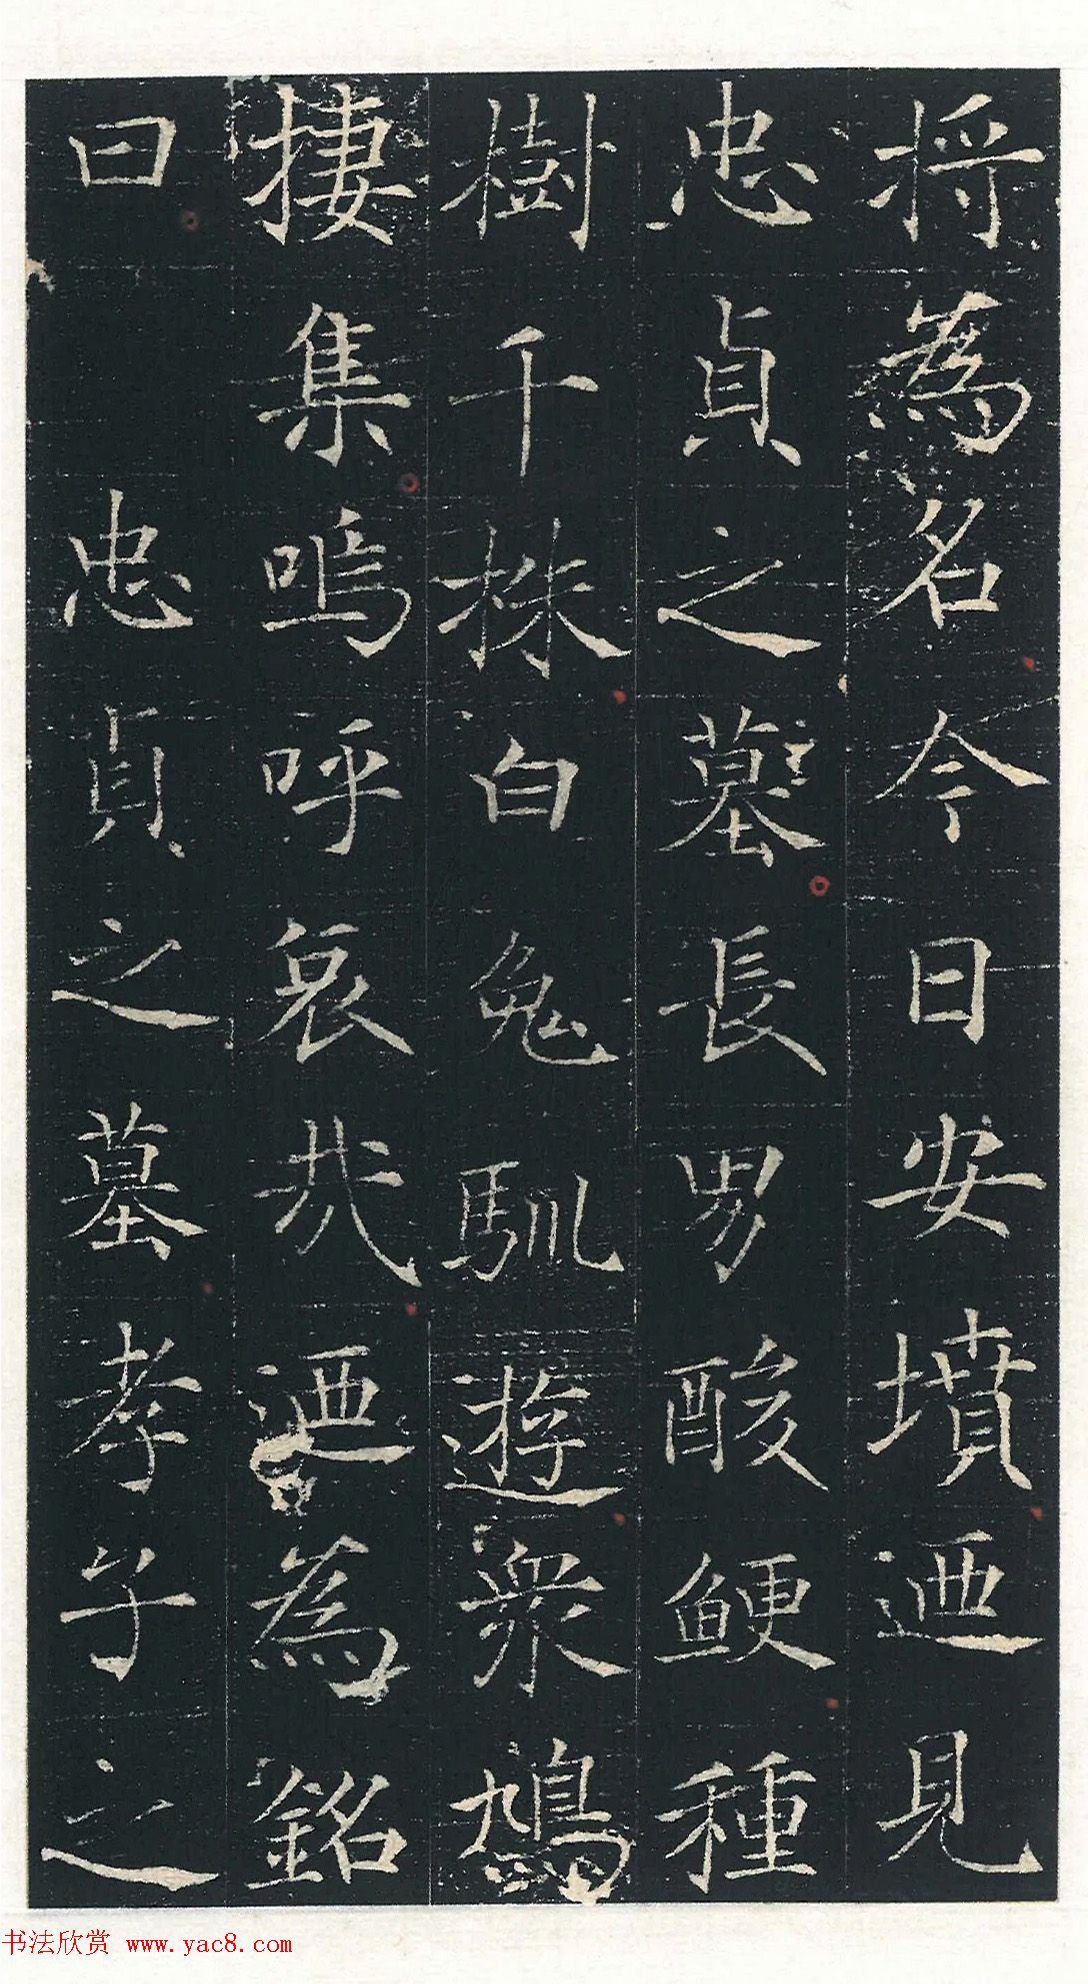 将為名今日安墳迺見
忠貞之墓長男酸鯁種
樹千株白兔馴遊衆鳩
捿集嗚呼哀哉迺為銘
曰忠貞之墓孝子之
书法欣赏 www.yac8.com